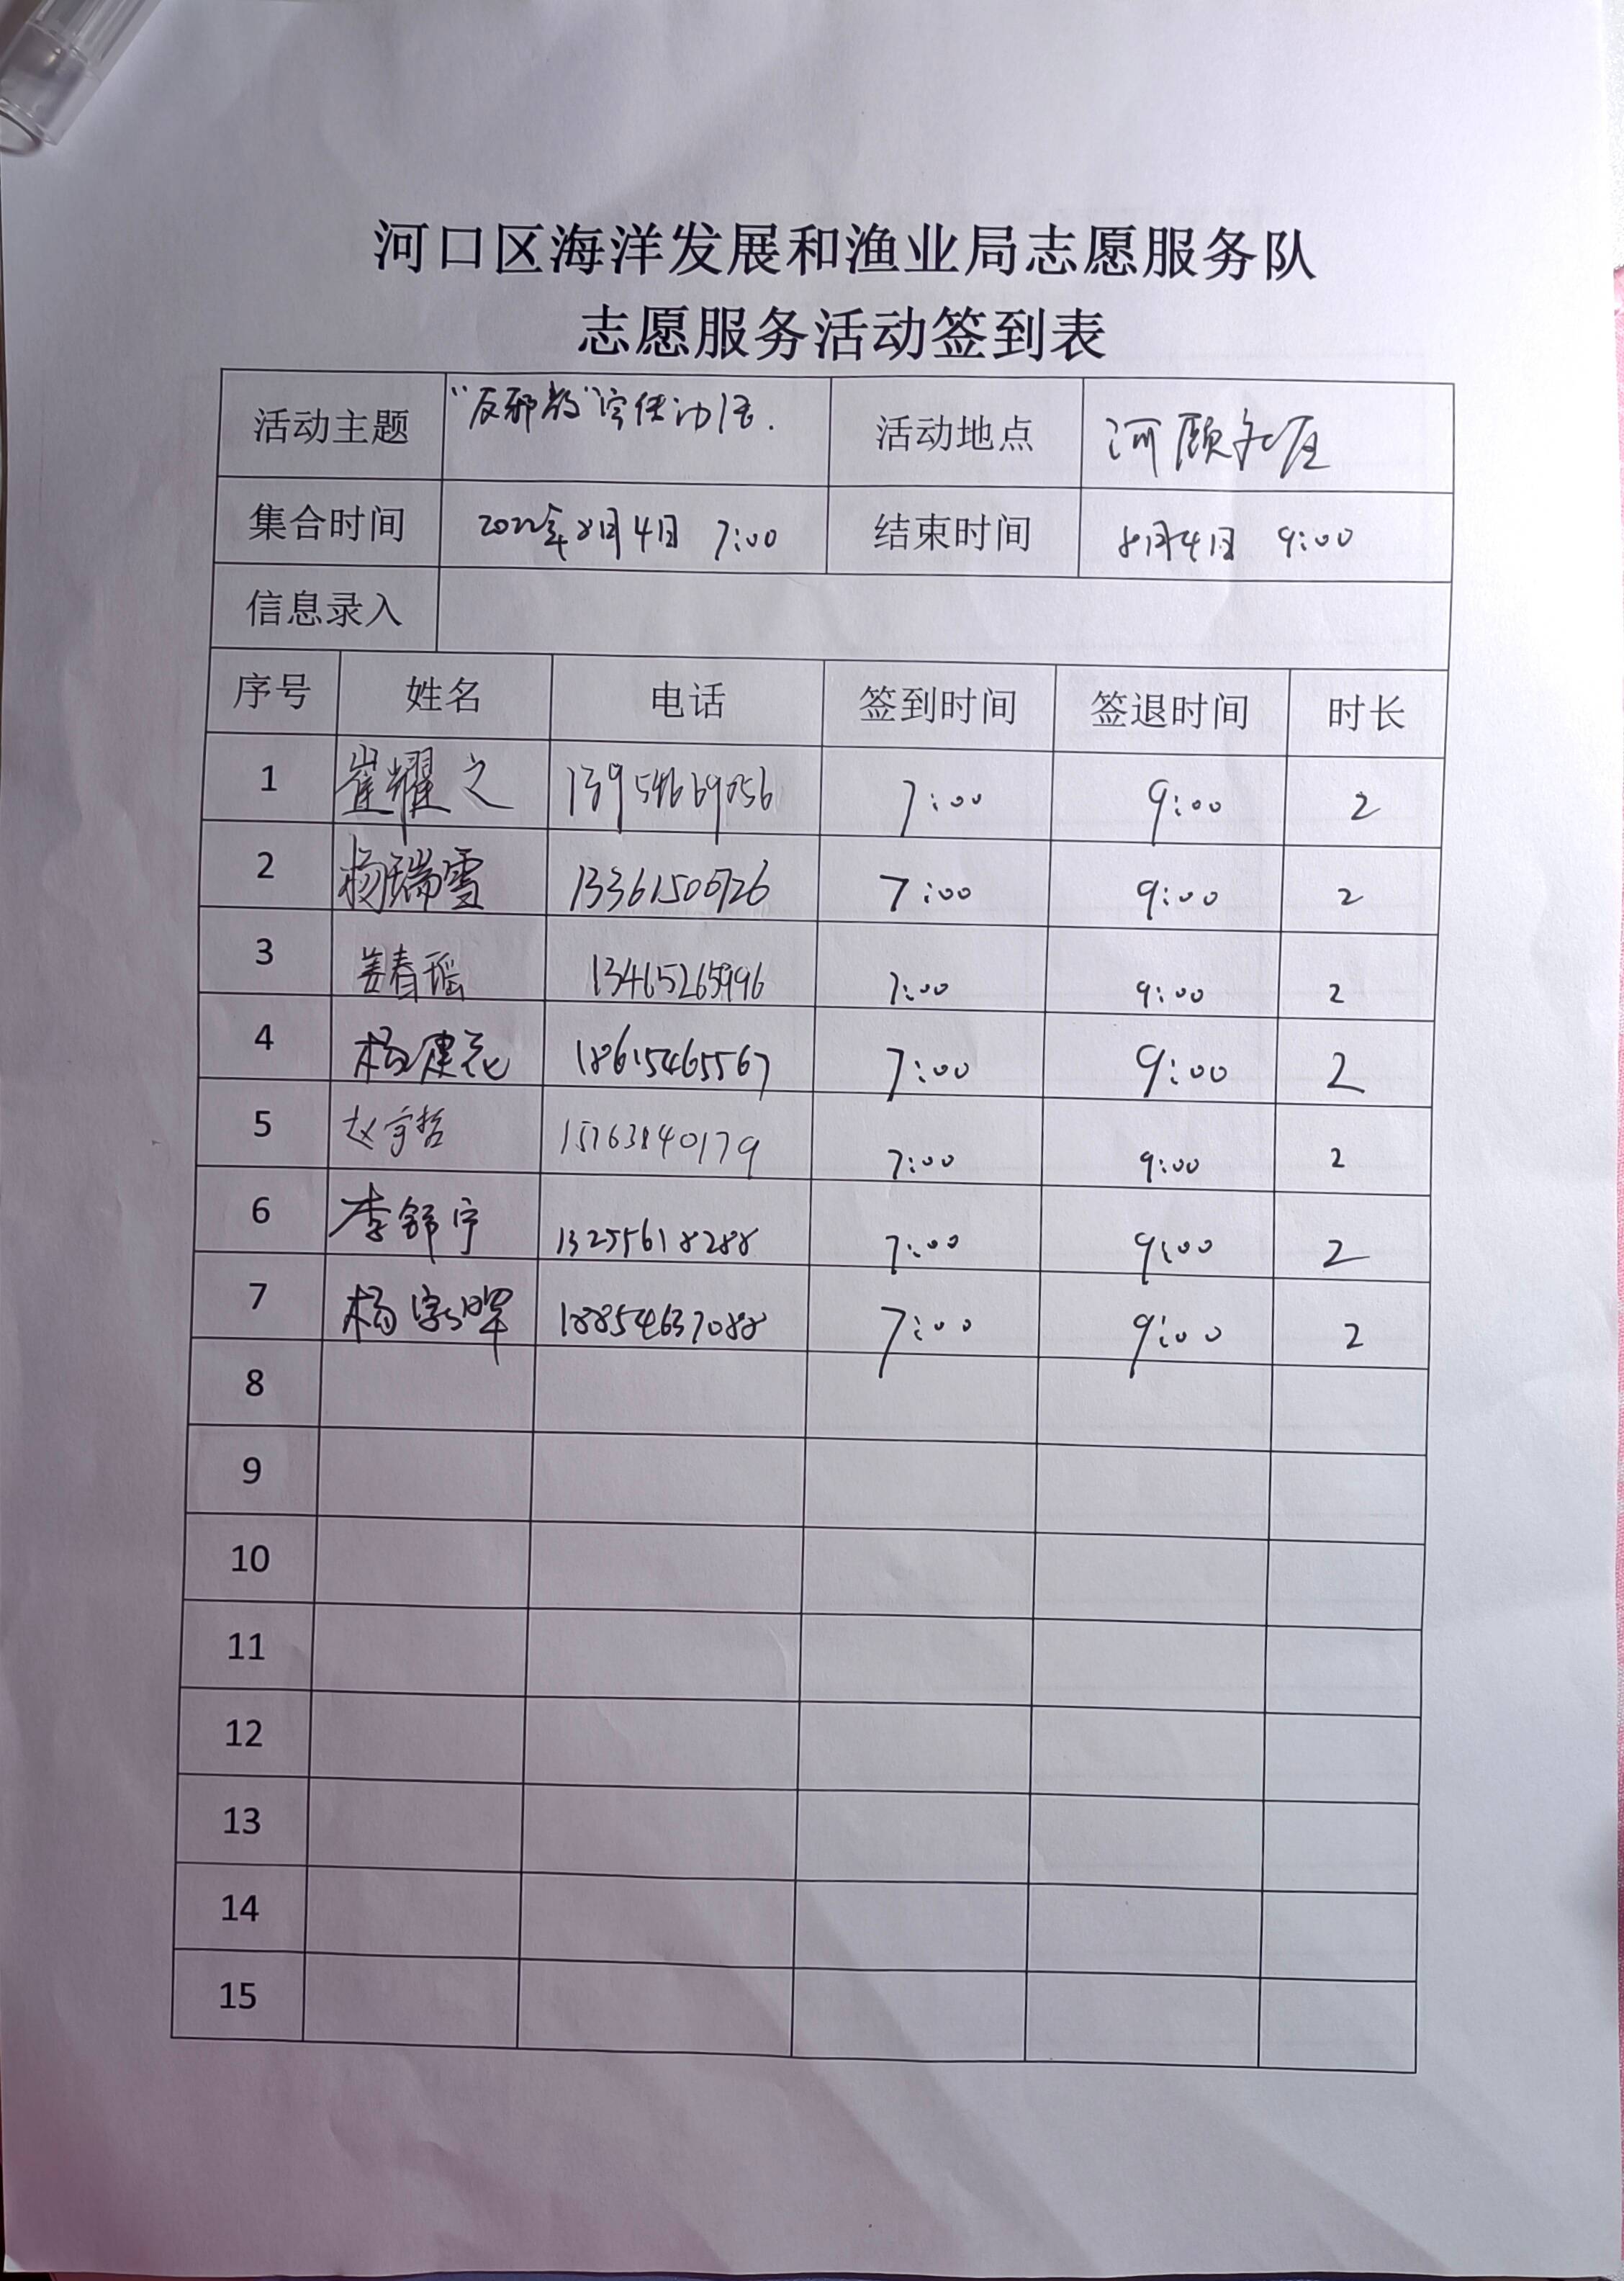 河口区海洋发展和渔业局志愿服务队
志愿服务活动签到表
活动主题 "反邪教"宣传活动. 活动地点 河颐社区
集合时间 2022年8月4日 7:00 结束时间 8月4日 9:00
信息录入
序号 姓名 电话 签到时间 签退时间 时长
1 崔耀之 13954669056 7:00 9:00 2
2 杨瑞雪 13361500726 7:00 9:00 2
3 姜春瑶 13465265996 7:00 9:00 2
4 杨建花 18615465567 7:00 9:00 2
5 赵宇哲 15763840179 7:00 9:00 2
6 李舒宁 13255618288 7:00 9:00 2
7 杨家晖 18854637088 7:00 9:00 2
8
9
10
11
12
13
14
15